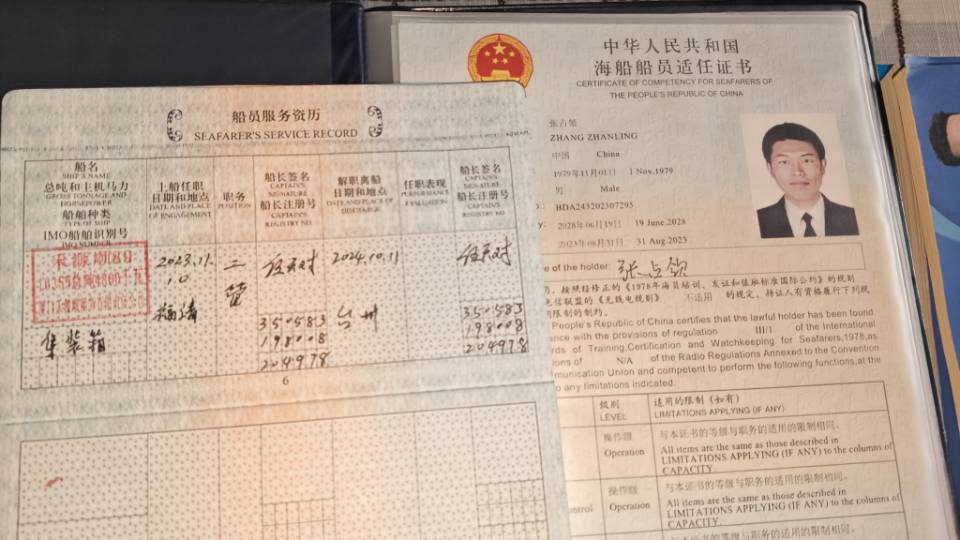 船员服务资历
SEAFARER'S SERVICE RECORD
船名
SHIP'S NAME
总吨和主机马力
GROSS TONNAGE AND
HORSEPOWER
船舶种类
TYPE OF SHIP
IMO船舶识别号
IMO NUMBER
上船任职
日期和地点
DATE AND PLACE
OF ENGAGEMENT
职务
POSITION
船长签名
CAPTAIN'S
SIGNATURE
船长注册号
CAPTAIN'S
REGISTRY NO.
解职离船
日期和地点
DATE AND PLACE OF
DISCHARGE
任职表现
PERFORMANCE
EVALUATION
船长签名
CAPTAIN'S
SIGNATURE
船长注册号
CAPTAIN'S
REGISTRY NO.
2023.11.
10
福靖
二
管
350583
198008
204978
2024.10.11
台州
350583
198008
204978
集装箱
6
中华人民共和国
海船船员适任证书
CERTIFICATE OF COMPETENCY FOR SEAFARERS OF
THE PEOPLE'S REPUBLIC OF CHINA
ZHANG ZHANLING
中国 China
1979年11月01日 1 Nov.1979
男 Male
HDA243202307295
2028年06月19日 19 June.2028
2023年08月31日 31 Aug.2023
of the holder:
按照经修正的《1978年海员培训、发证和值班标准国际公约》的规则
电信联盟的《无线电规则》 不适用 的规定，持证人有资格履行下列职
限制的制约。
People's Republic of China certifies that the lawful holder has been found
with the provisions of regulation III/1 of the International
of Training,Certification and Watchkeeping for Seafarers,1978,as
of N/A of the Radio Regulations Annexed to the Convention
Union and competent to perform the following functions,at the
any limitations indicated.
级别
LEVEL
适用的限制（如有）
LIMITATIONS APPLYING (IF ANY)
操作级
Operation
与本证书的等级与职务的适用的限制相同。
All items are the same as those described in
LIMITATIONS APPLYING (IF ANY) to the columns of
CAPACITY
操作级
Operation
与本证书的等级与职务的适用的限制相同。
All items are the same as those described in
LIMITATIONS APPLYING (IF ANY) to the columns of
CAPACITY
与本证书的等级与职务的适用的限制相同。